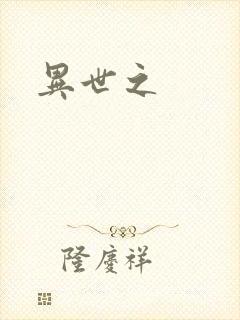 異世之
隆慶祥